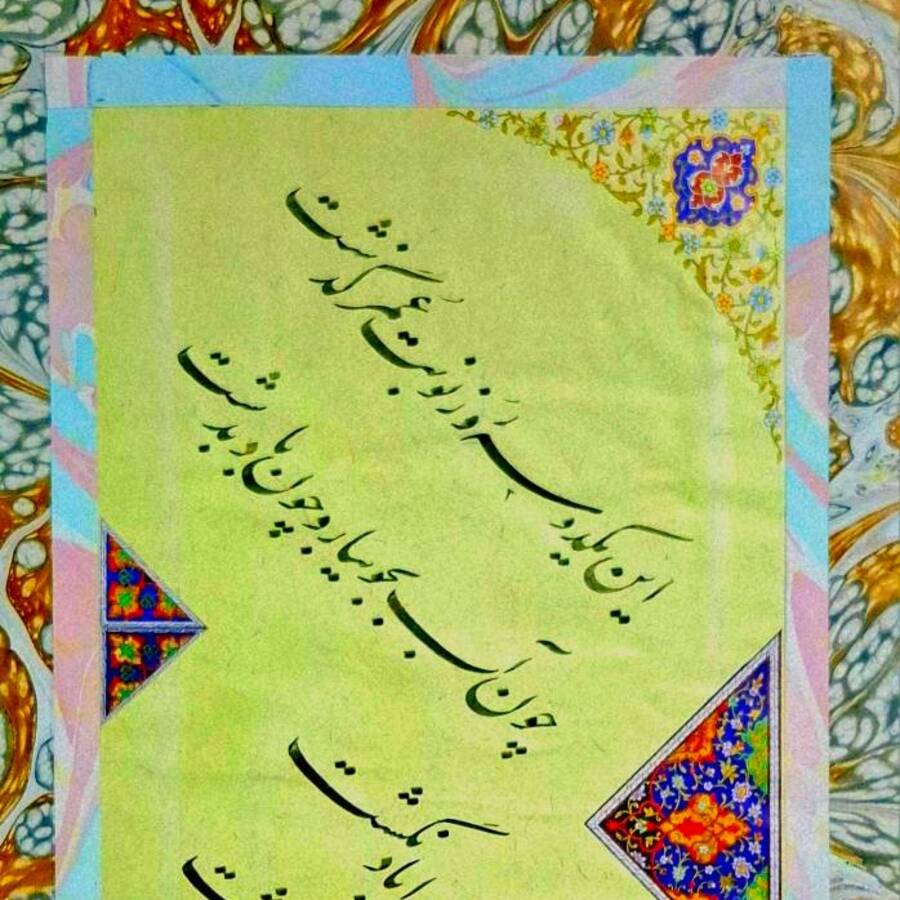 این یکدو سه روز نوبت عمر گذشت
چون آب بجویبار و چون باد بدشت
یاد نگشت